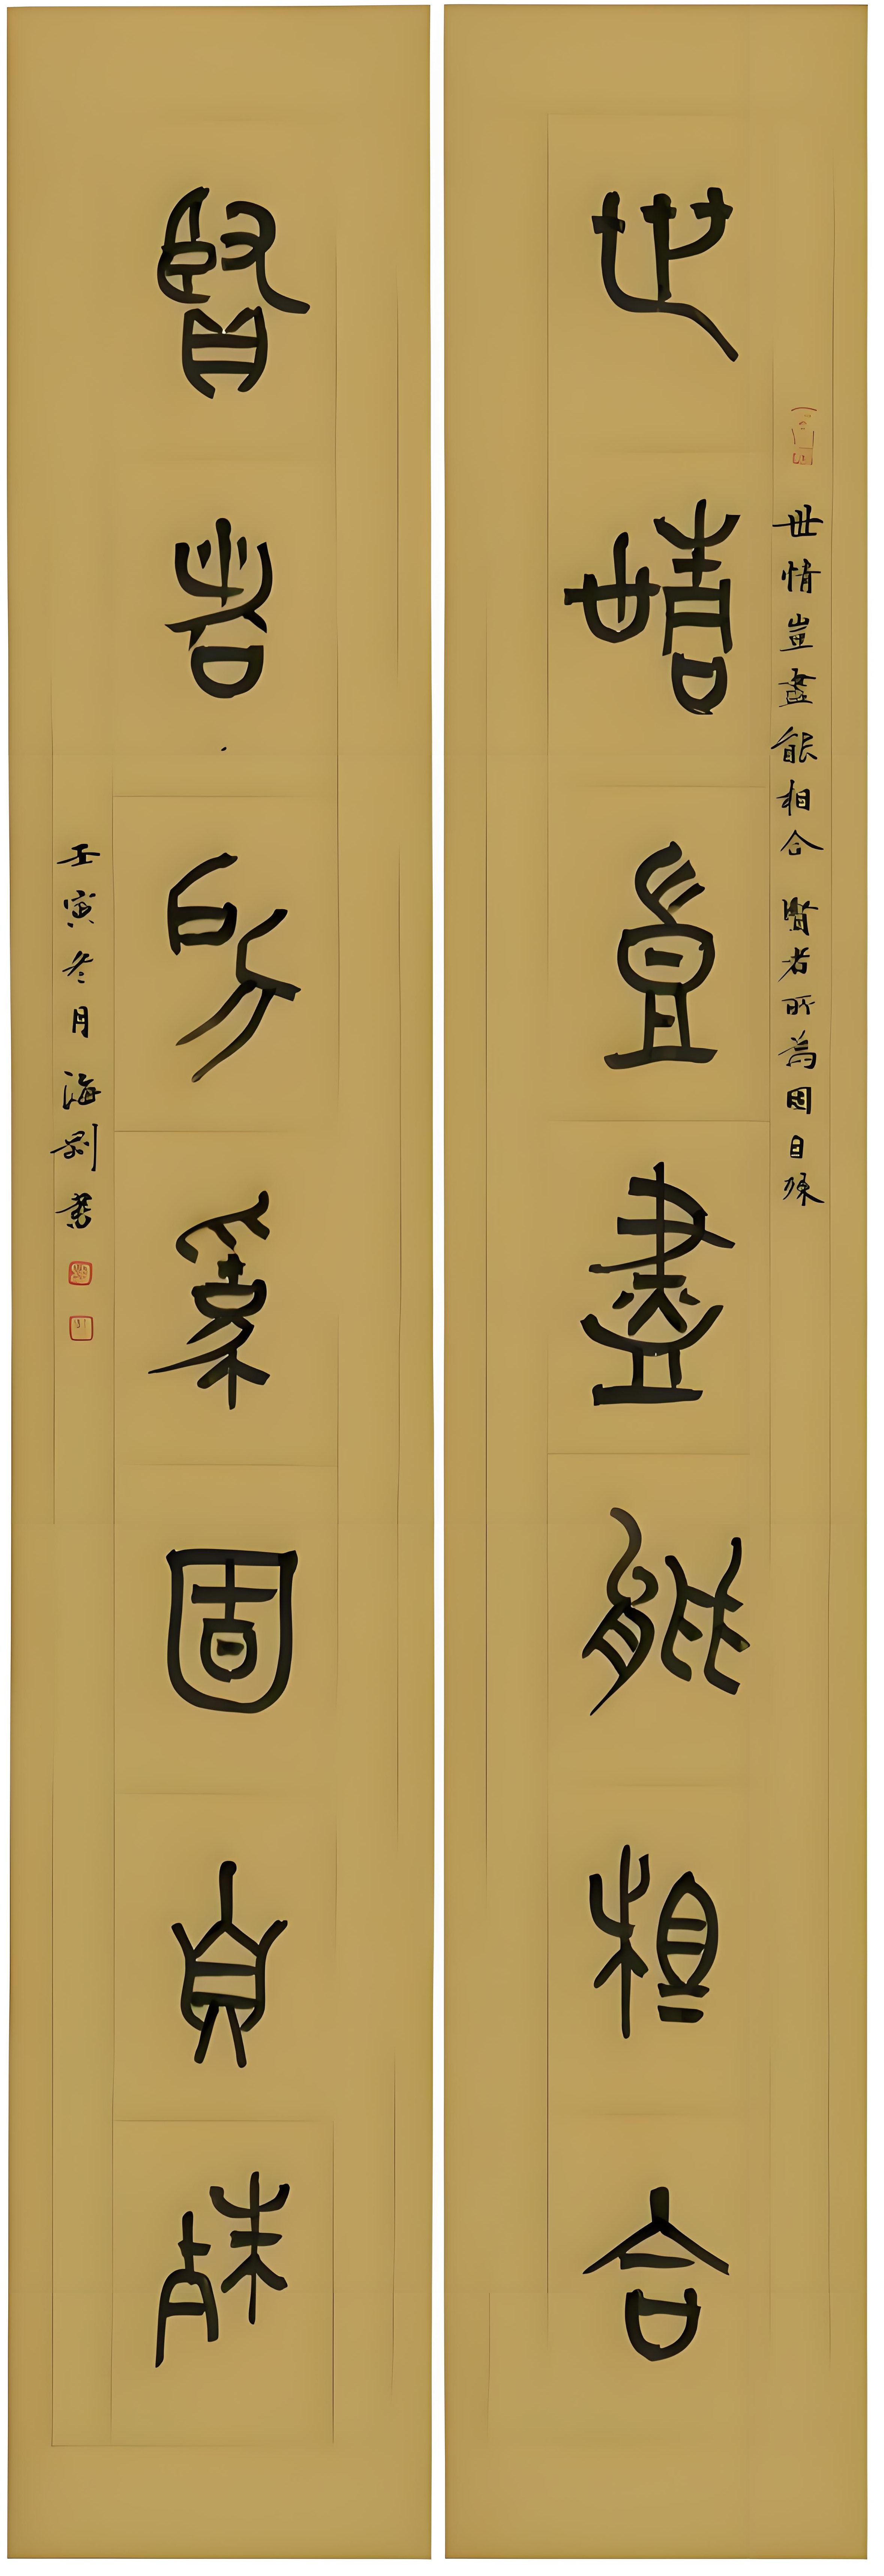 世情豈盡能相合
世情豈盡能相合 賢者所為固自殊
賢者所為固自殊
壬寅冬月海剛書